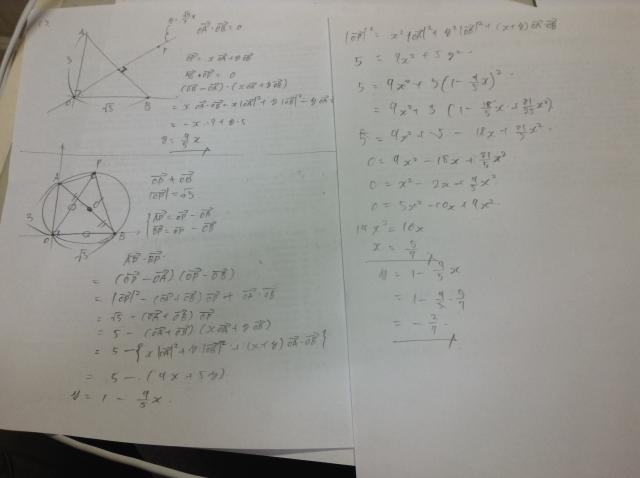 OA·OB = 0
A
P
3
O
√5
B
OP = xOA + yOB
AB·OP = 0
(OB - OA)·(xOA + yOB)
= -x·9 + y·5
y = 9/5 x
A
P
3
O
√5
B
|OP| = √5
AP = OP - OA
BP = OP - OB
AP·BP
= (OP - OA)(OP - OB)
= |OP|² - (OA + OB)OP + OA·OB
= √5 - (OA + OB)OP
= 5 - (OA + OB)(xOA + yOB)
= 5 - {x|OA|² + y|OB|² + (x+y)OA·OB}
= 5 - (9x + 5y)
y = 1 - 9/5 x
|OP|² = x²|OA|² + y²|OB|² + (x+y)OA·OB
5 = 9x² + 5y²
5 = 9x² + 5(1 - 9/5 x)²
= 9x² + 5(1 - 18/5 x + 81/25 x²)
5 = 9x² + 5 - 18x + 81/5 x²
0 = 9x² - 18x + 81/5 x²
0 = x² - 2x + 9/5 x²
0 = 5x² - 10x + 9x²
14x² = 10x
x = 5/7
y = 1 - 9/5 x
= 1 - 9/5 · 5/7
= -2/7